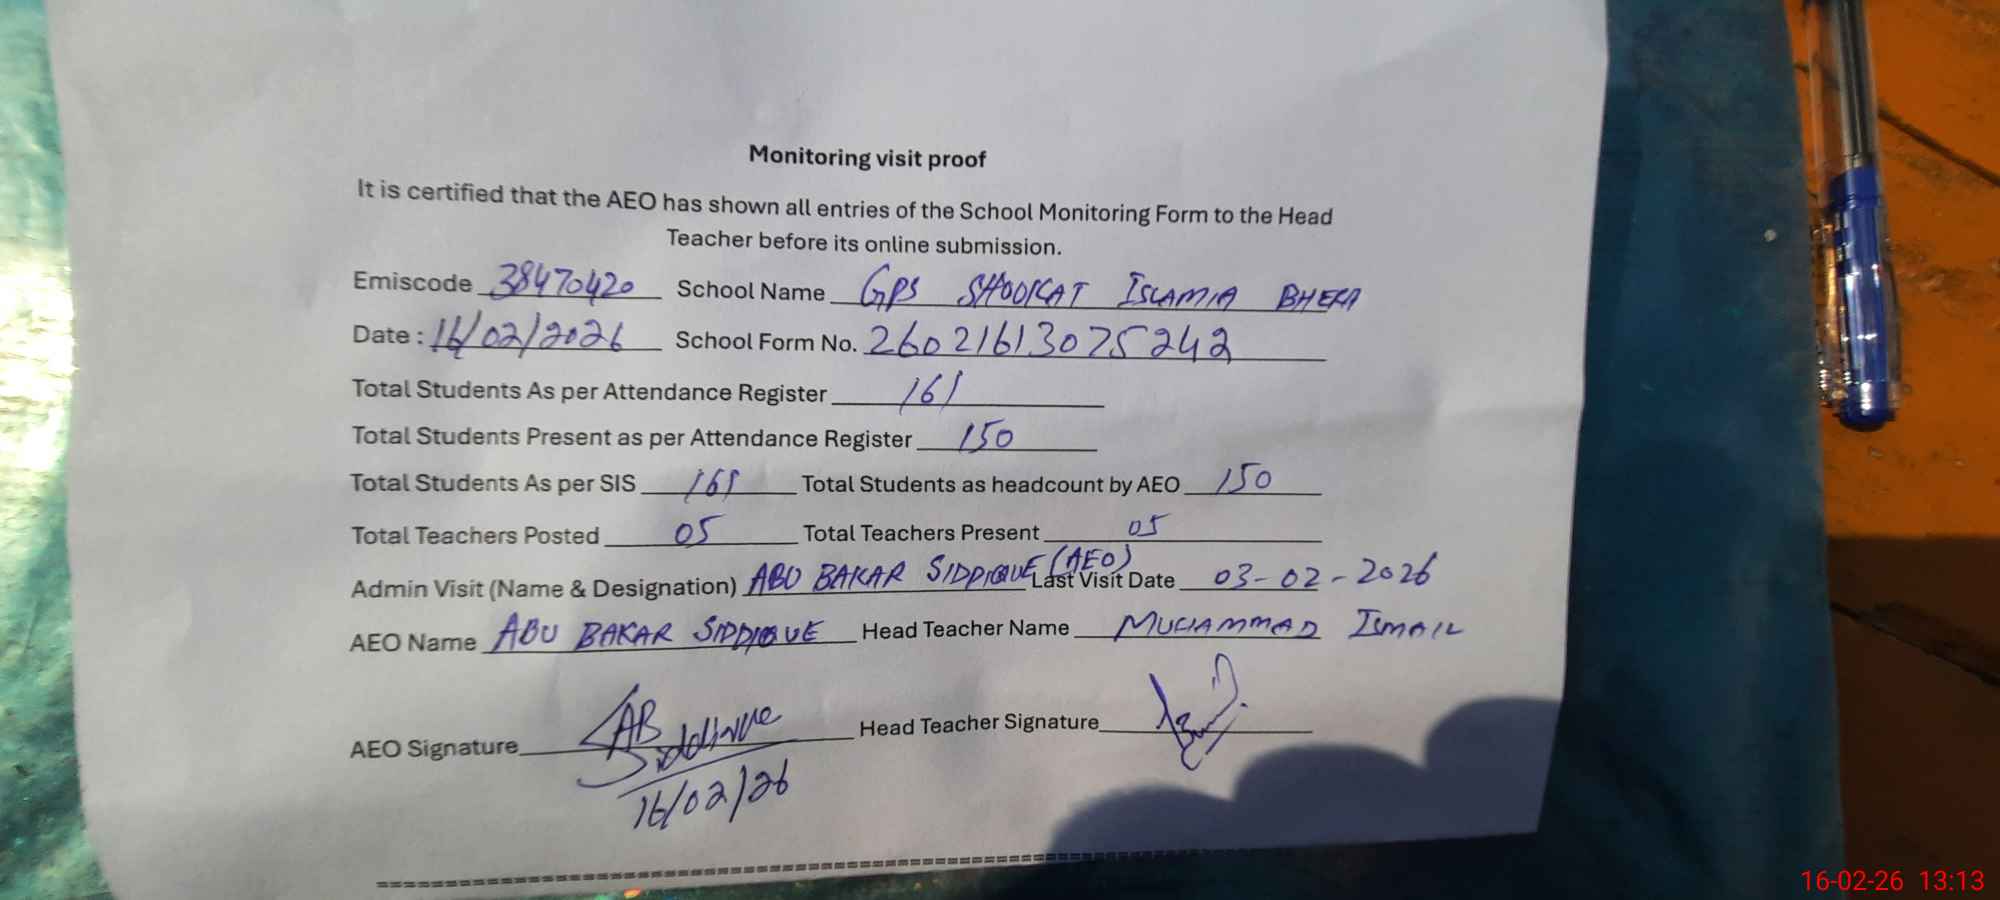 Monitoring visit proof
It is certified that the AEO has shown all entries of the School Monitoring Form to the Head
Teacher before its online submission.
Emiscode 38470420 School Name GPS SHOUKAT ISLAMIA BHERA
Date : 16/02/2026 School Form No. 26021613075242
Total Students As per Attendance Register 161
Total Students Present as per Attendance Register 150
Total Students As per SIS 161 Total Students as headcount by AEO 150
Total Teachers Posted 05 Total Teachers Present 05
Admin Visit (Name & Designation) ABU BAKAR SIDDIQUE (AEO) Last Visit Date 03-02-2026
AEO Name ABU BAKAR SIDDIQUE Head Teacher Name MUHAMMAD ISMAIL
AEO Signature AB Siddique Head Teacher Signature
16/02/26
16-02-26 13:13